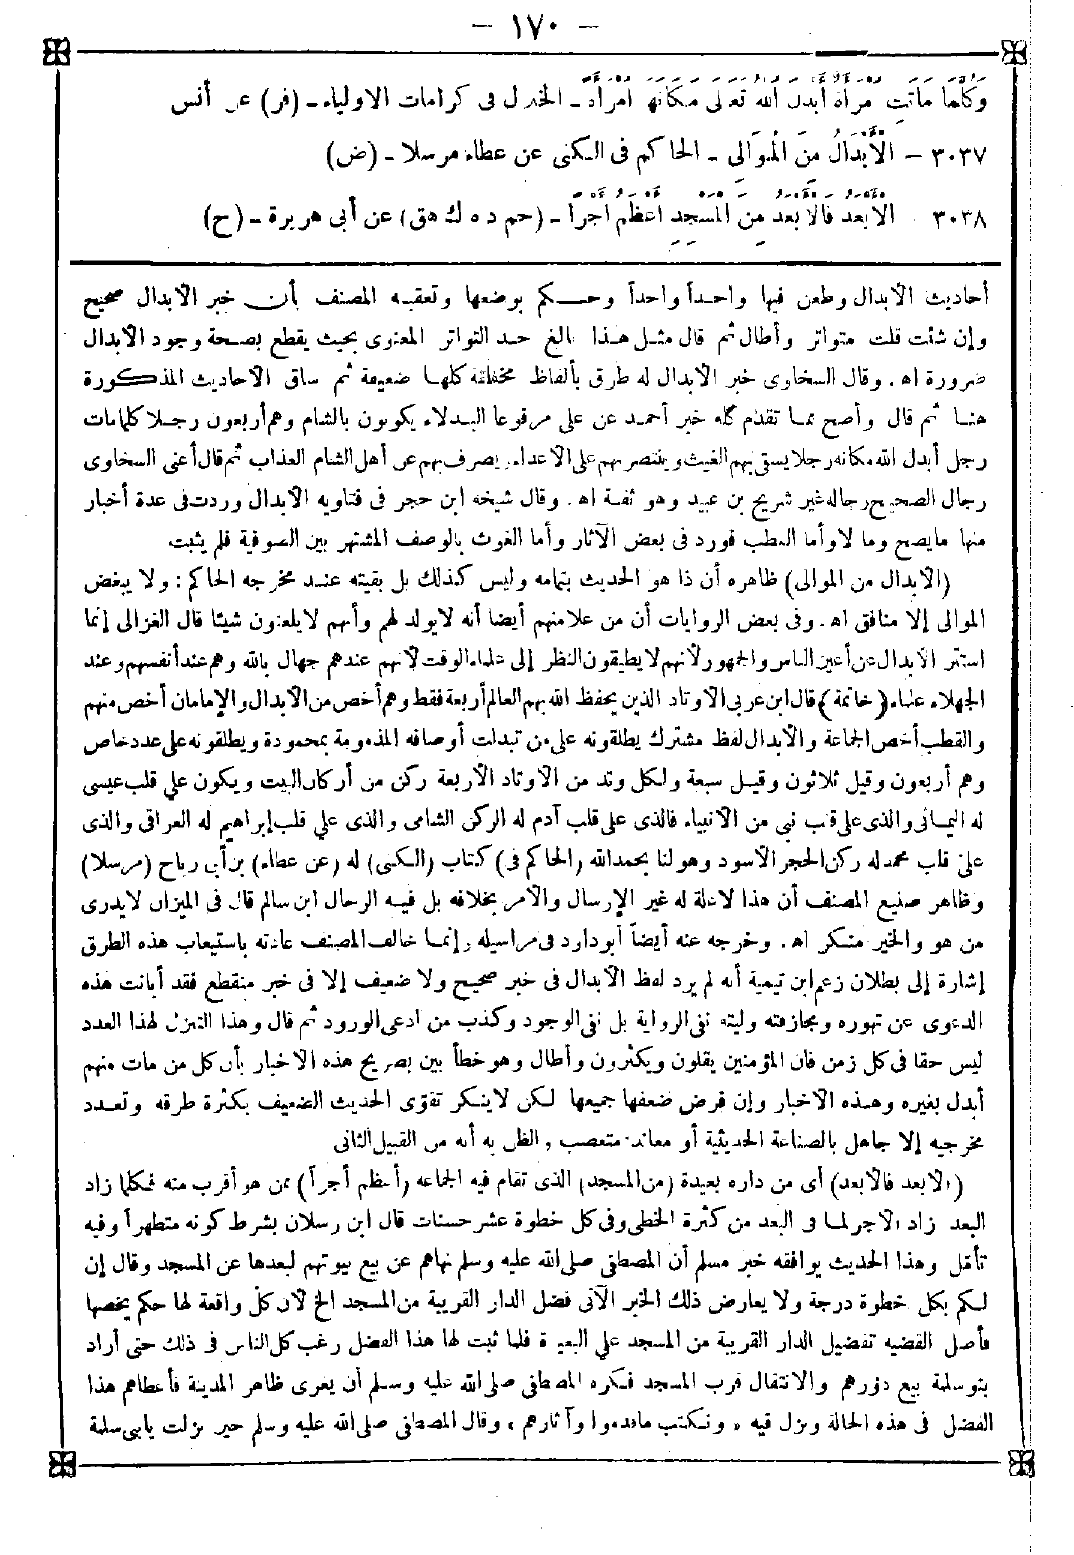 – ١٧٠ –
وَكُلَّمَا مَاتَتِ امْرَأَةٌ أَبْدَلَ اللهُ تَعَالَى مَكَانَهَا امْرَأَةً – الخلال فى كرامات الاولياء – (فر) عن أنس
٣٠٣٧ – الْأَبْدَالُ مِنَ الْمَوَالِى – الحاكم فى الكنى عن عطاء مرسلا – (ض)
٣٠٣٨ الْأَبْعَدُ فَالْأَبْعَدُ مِنَ الْمَسْجِدِ أَعْظَمُ أَجْرًا – (حم د ه ك هق) عن أبى هريرة – (ح)
أحاديث الأبدال وطعن فيها واحداً واحداً وحكم بوضعها وتعقبه المصنف بأن خبر الأبدال صحيح
وإن شئت قلت متواتر وأطال ثم قال مثل هذا بالغ حد التواتر المعنوى بحيث يقطع بصحة وجود الأبدال
ضرورة اه . وقال السخاوى خبر الأبدال له طرق بألفاظ مختلفة كلها ضعيفة ثم ساق الأحاديث المذكورة
هنا ثم قال وأصح مما تقدم كله خبر أحمد عن على مرفوعا البدلاء يكونون بالشام وهم أربعون رجلا كلما مات
رجل أبدل الله مكانه رجلا يسقى بهم الغيث وينتصر بهم على الأعداء ويصرف بهم عن أهل الشام العذاب ثم قال أعنى السخاوى
رجال الصحيح رجاله غير شريح بن عبيد وهو ثقة اه . وقال شيخه ابن حجر فى فتاويه الأبدال وردت فى عدة أخبار
منها ما يصح وما لا وأما القطب فورد فى بعض الآثار وأما الغوث بالوصف المشتهر بين الصوفية فلم يثبت
(الأبدال من الموالى) ظاهره أن ذا هو الحديث بتمامه وليس كذلك بل بقيته عند مخرجه الحاكم : ولا يبغض
الموالى إلا منافق اه . وفى بعض الروايات أن من علامتهم أيضا أنه لا يولد لهم وأنهم لا يلعنون شيئا قال الغزالى إنما
استتر الأبدال عن أعين الناس والجمهور لأنهم لا يطيقون النظر إلى علماء الوقت لأنهم عندهم جهال بالله وهم عند أنفسهم وعند
الجهلاء علماء (خاتمة) قال ابن عربى الأوتاد الذين يحفظ الله بهم العالم أربعة فقط وهم أخص من الأبدال والإمامان أخص منهم
والقطب أخص الجماعة والأبدال لفظ مشترك يطلقونه على من تبدلت أوصافه المذمومة بمحمودة ويطلقونه على عدد خاص
وهم أربعون وقيل ثلاثون وقيل سبعة ولكل وتد من الأوتاد الأربعة ركن من أركان البيت ويكون على قلب عيسى
له اليمانى والذى على قلب نبى من الأنبياء فالذى على قلب آدم له الركن الشامى والذى على قلب إبراهيم له العراقى والذى
على قلب محمد له ركن الحجر الأسود وهو لنا بحمد الله (الحاكم فى) كتاب (الكنى) له (عن عطاء) بن أبى رباح (مرسلا)
وظاهر صنيع المصنف أن هذا لا علة له غير الإرسال والأمر بخلافه بل فيه الرحال ابن سالم قال فى الميزان لا يدرى
من هو والخبر منكر اه . وخرجه عنه أيضاً أبو داود فى مراسيله وإنما خالف المصنف عادته باستيعاب هذه الطرق
إشارة إلى بطلان زعم ابن تيمية أنه لم يرد لفظ الأبدال فى خبر صحيح ولا ضعيف إلا فى خبر منقطع فقد أبانت هذه
الدعوى عن تهوره ومجازفته وليته نفى الرواية بل نفى الوجود وكذب من ادعى الورود ثم قال وهذا التنزل لهذا العدد
ليس حقا فى كل زمن فان المؤمنين يقلون ويكثرون وأطال وهو خطأ بين بصريح هذه الأخبار بأن كل من مات منهم
أبدل بغيره وهذه الأخبار وإن فرض ضعفها جميعها لكن لا ينكر تقوّى الحديث الضعيف بكثرة طرقه وتعدد
مخرجيه إلا جاهل بالصناعة الحديثية أو معاند متعصب والظن به أنه من القبيل الثانى
(الأبعد فالأبعد) أى من داره بعيدة (من المسجد) الذى تقام فيه الجماعة (أعظم أجراً) ممن هو أقرب منه فكلما زاد
البعد زاد الأجر لما فى البعد من كثرة الخطى وفى كل خطوة عشر حسنات قال ابن رسلان بشرط كونه متطهراً وفيه
تأمل وهذا الحديث يوافقه خبر مسلم أن المصطفى صلى الله عليه وسلم نهاهم عن بيع بيوتهم لبعدها عن المسجد وقال إن
لكم بكل خطوة درجة ولا يعارض ذلك الخبر الآتى فضل الدار القريبة من المسجد الخ لأن كلّ واقعة لها حكم يخصها
فأصل القضيه تفضيل الدار القريبة من المسجد على البعيدة فلما ثبت لها هذا الفضل رغب كل الناس فى ذلك حتى أراد
بنو سلمة بيع دورهم والانتقال قرب المسجد فكره المصطفى صلى الله عليه وسلم أن يعرى ظاهر المدينة فأعطاهم هذا
الفضل فى هذه الحالة ونزل فيه «ونكتب ما قدموا وآثارهم» وقال المصطفى صلى الله عليه وسلم حين نزلت يابنى سلمة